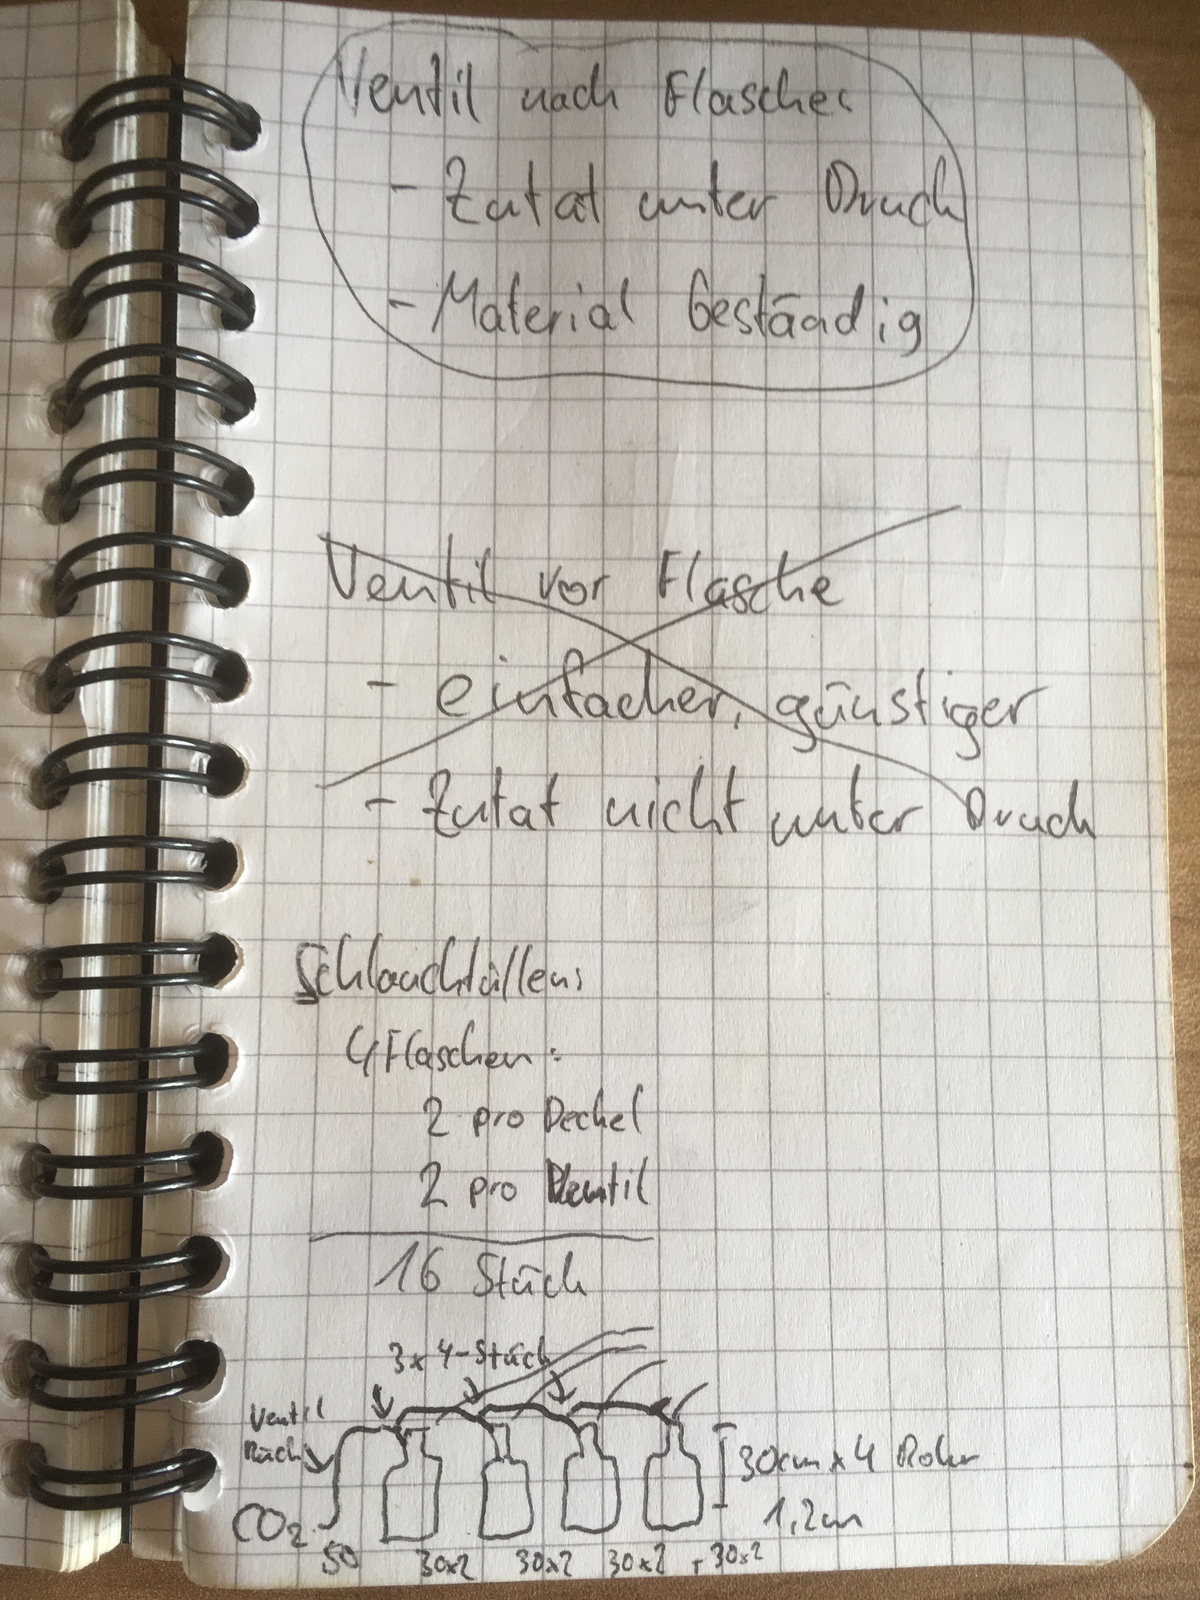 Ventil nach Flasche:
- Zutat unter Druck
- Material beständig
Ventil vor Flasche
- einfacher, günstiger
- Zutat nicht unter Druck
Schlauchtüllen:
4 Flaschen:
2 pro Deckel
2 pro Ventil
16 Stück
3x 4-Stück
Ventil
Rück
30cm x 4 Rohr
CO2
1,2m
50 30x2 30x2 30x2 + 30x2